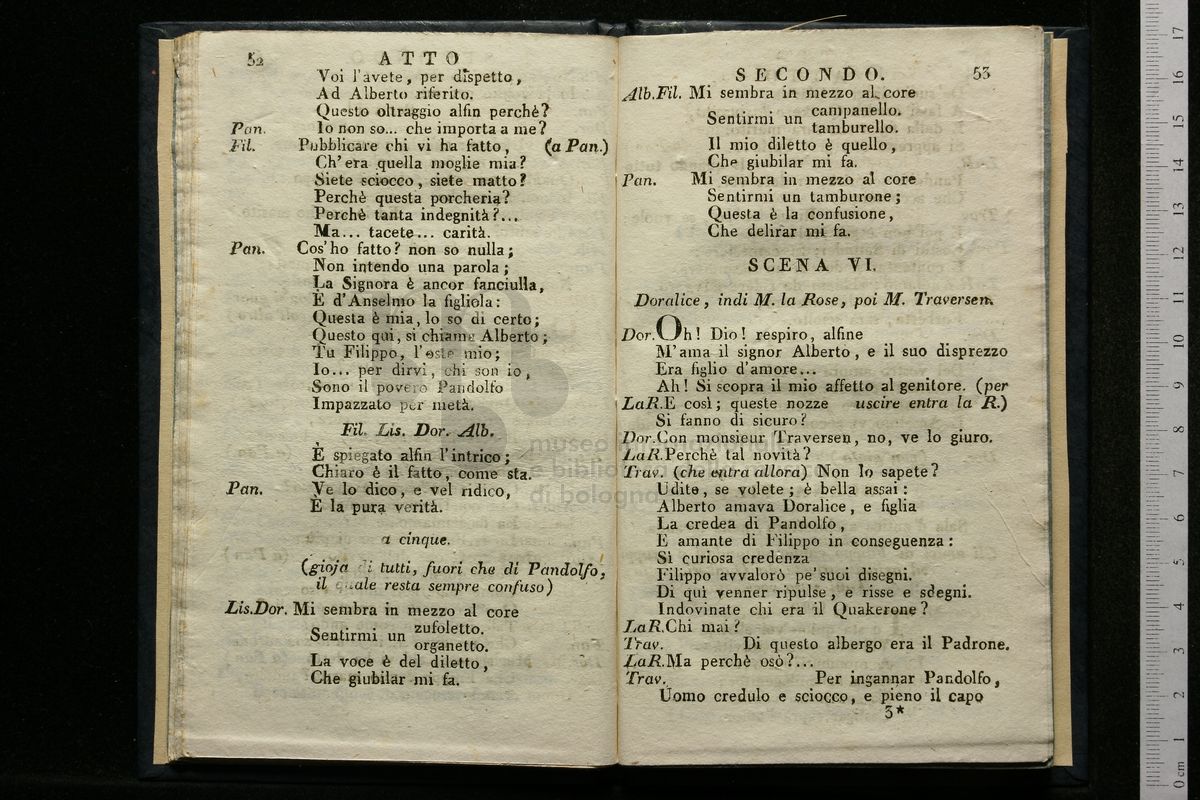 52
ATTO
Voi l'avete, per dispetto,
Ad Alberto riferito.
Questo oltraggio alfin perchè?
Pan. Io non so... che importa a me?
Fil. Pubblicare chi vi ha fatto, (a Pan.)
Ch'era quella moglie mia?
Siete sciocco, siete matto?
Perchè questa porcheria?
Perchè tanta indegnità?...
Ma... tacete... carità.
Pan. Cos'ho fatto? non so nulla;
Non intendo una parola;
La Signora è ancor fanciulla,
E d'Anselmo la figliola:
Questa è mia, lo so di certo;
Questo qui, si chiama Alberto;
Tu Filippo, l'oste mio;
Io... per dirvi, chi son io,
Sono il povero Pandolfo
Impazzato per metà.
Fil. Lis. Dor. Alb.
È spiegato alfin l'intrico;
Chiaro è il fatto, come sta.
Pan. Ve lo dico, e vel ridico,
È la pura verità.
a cinque.
(gioja di tutti, fuori che di Pandolfo,
il quale resta sempre confuso)
Lis.Dor. Mi sembra in mezzo al core
Sentirmi un zufoletto.
organetto.
La voce è del diletto,
Che giubilar mi fa.
SECONDO.
53
Alb.Fil. Mi sembra in mezzo al core
Sentirmi un campanello.
tamburello.
Il mio diletto è quello,
Che giubilar mi fa.
Pan. Mi sembra in mezzo al core
Sentirmi un tamburone;
Questa è la confusione,
Che delirar mi fa.
SCENA VI.
Doralice, indi M. la Rose, poi M. Traversen.
Dor. Oh! Dio! respiro, alfine
M'ama il signor Alberto, e il suo disprezzo
Era figlio d'amore...
Ah! Si scopra il mio affetto al genitore. (per
LaR. E così; queste nozze uscire entra la R.)
Si fanno di sicuro?
Dor. Con monsieur Traversen, no, ve lo giuro.
LaR. Perchè tal novità?
Trav. (che entra allora) Non lo sapete?
Udite, se volete; è bella assai:
Alberto amava Doralice, e figlia
La credea di Pandolfo,
E amante di Filippo in conseguenza:
Sì curiosa credenza
Filippo avvalorò pe'suoi disegni.
Di quì venner ripulse, e risse e sdegni.
Indovinate chi era il Quakerone?
LaR. Chi mai?
Trav. Di questo albergo era il Padrone.
LaR. Ma perchè osò?...
Trav. Per ingannar Pandolfo,
Uomo credulo e sciocco, e pieno il capo
3*
museo internazionale
e biblioteca della musica
di bologna
0 cm 1 2 3 4 5 6 7 8 9 10 11 12 13 14 15 16 17